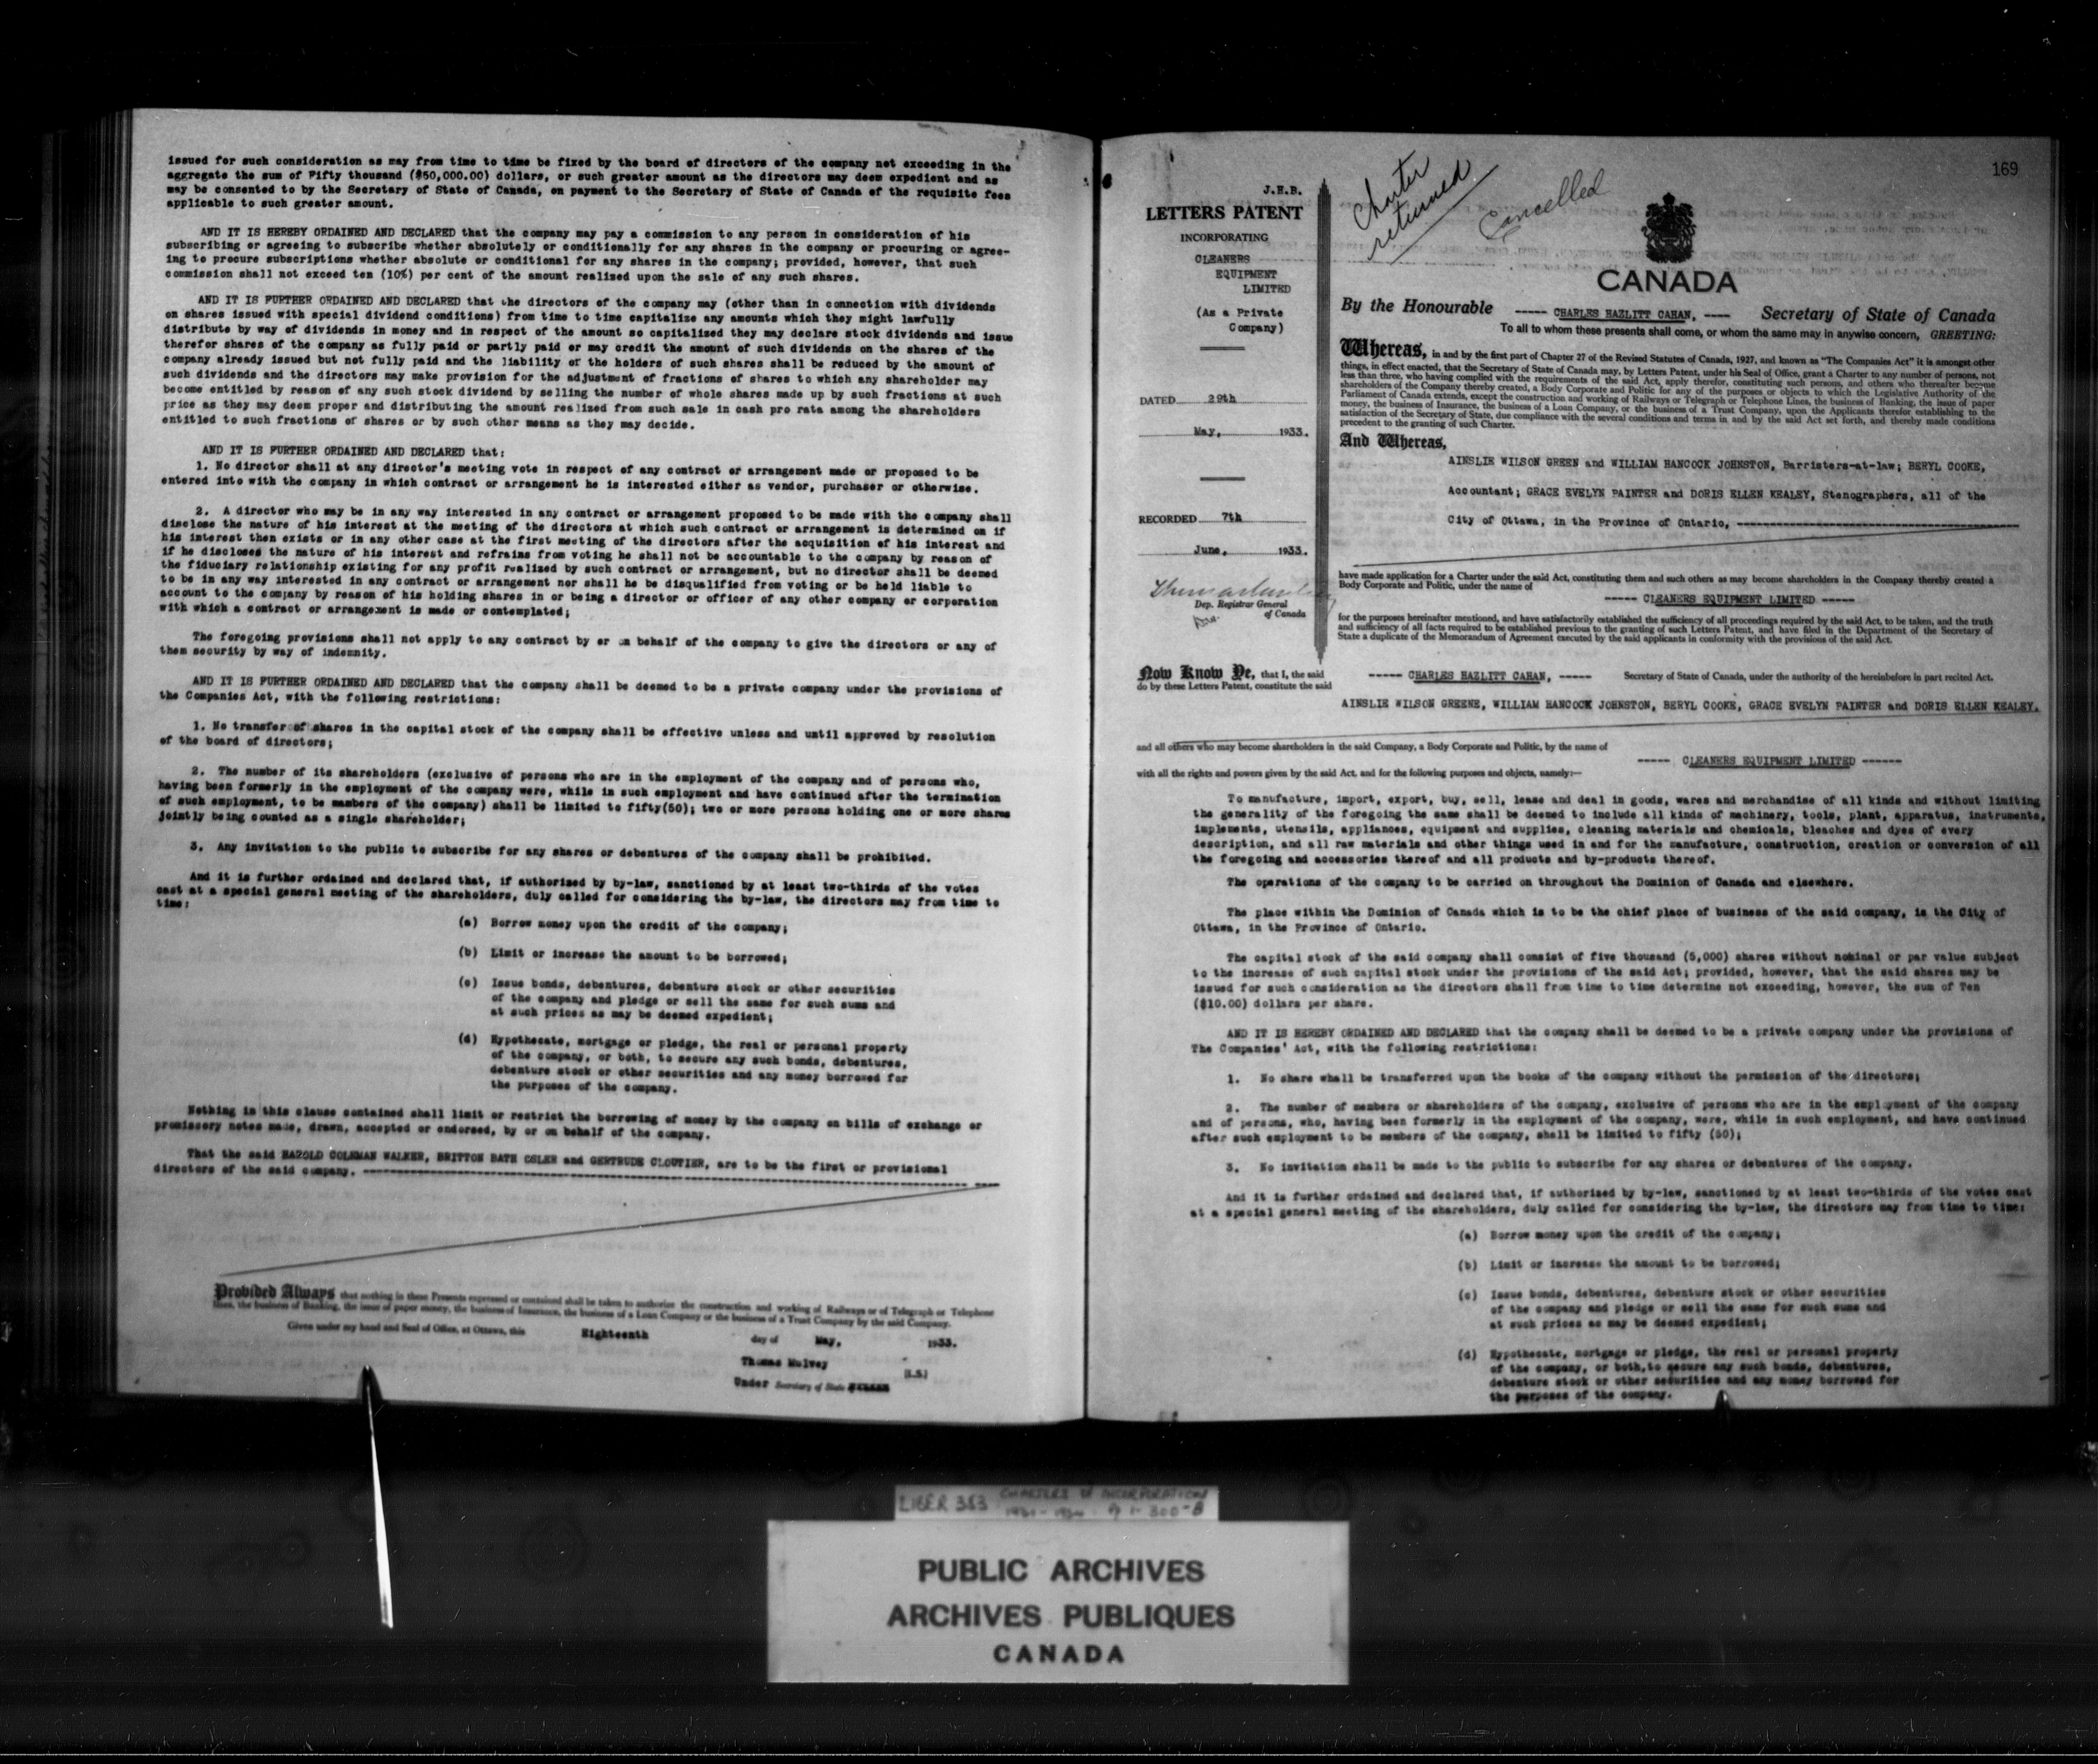 issued for such consideration as may from time to time be fixed by the board of directors of the company not exceeding in the
aggregate the sum of Fifty thousand ($50,000.00) dollars, or such greater amount as the directors may deem expedient and as
may be consented to by the Secretary of State of Canada, on payment to the Secretary of State of Canada of the requisite fees
applicable to such greater amount.
AND IT IS HEREBY ORDAINED AND DECLARED that the company may pay a commission to any person in consideration of his
subscribing or agreeing to subscribe whether absolutely or conditionally for any shares in the company or procuring or agree-
ing to procure subscriptions whether absolute or conditional for any shares in the company; provided, however, that such
commission shall not exceed ten (10%) per cent of the amount realized upon the sale of any such shares.
AND IT IS FURTHER ORDAINED AND DECLARED that the directors of the company may (other than in connection with dividends
on shares issued with special dividend conditions) from time to time capitalize any amounts which they might lawfully
distribute by way of dividends in money and in respect of the amount so capitalized they may declare stock dividends and issue
therefor shares of the company as fully paid or partly paid or may credit the amount of such dividends on the shares of the
company already issued but not fully paid and the liability of the holders of such shares shall be reduced by the amount of
such dividends and the directors may make provision for the adjustment of fractions of shares to which any shareholder may
become entitled by reason of any such stock dividend by selling the number of whole shares made up by such fractions at such
price as they may deem proper and distributing the amount realized from such sale in cash pro rata among the shareholders
entitled to such fractions of shares or by such other means as they may decide.
AND IT IS FURTHER ORDAINED AND DECLARED that:
1. No director shall at any director's meeting vote in respect of any contract or arrangement made or proposed to be
entered into with the company in which contract or arrangement he is interested either as vendor, purchaser or otherwise.
2. A director who may be in any way interested in any contract or arrangement proposed to be made with the company shall
disclose the nature of his interest at the meeting of the directors at which such contract or arrangement is determined on if
his interest then exists or in any other case at the first meeting of the directors after the acquisition of his interest and
if he discloses the nature of his interest and refrains from voting he shall not be accountable to the company by reason of
the fiduciary relationship existing for any profit realized by such contract or arrangement, but no director shall be deemed
to be in any way interested in any contract or arrangement nor shall he be disqualified from voting or be held liable to
account to the company by reason of his holding shares in or being a director or officer of any other company or corporation
with which a contract or arrangement is made or contemplated;
The foregoing provisions shall not apply to any contract by or on behalf of the company to give the directors or any of
them security by way of indemnity.
AND IT IS FURTHER ORDAINED AND DECLARED that the company shall be deemed to be a private company under the provisions of
the Companies Act, with the following restrictions:
1. No transfer of shares in the capital stock of the company shall be effective unless and until approved by resolution
of the board of directors;
2. The number of its shareholders (exclusive of persons who are in the employment of the company and of persons who,
having been formerly in the employment of the company were, while in such employment and have continued after the termination
of such employment, to be members of the company) shall be limited to fifty(50); two or more persons holding one or more shares
jointly being counted as a single shareholder;
3. Any invitation to the public to subscribe for any shares or debentures of the company shall be prohibited.
And it is further ordained and declared that, if authorized by by-law, sanctioned by at least two-thirds of the votes
cast at a special general meeting of the shareholders, duly called for considering the by-law, the directors may from time to
time:
(a) Borrow money upon the credit of the company;
(b) Limit or increase the amount to be borrowed;
(c) Issue bonds, debentures, debenture stock or other securities
of the company and pledge or sell the same for such sums and
at such prices as may be deemed expedient;
(d) Hypothecate, mortgage or pledge, the real or personal property
of the company, or both, to secure any such bonds, debentures,
debenture stock or other securities and any money borrowed for
the purposes of the company.
Nothing in this clause contained shall limit or restrict the borrowing of money by the company on bills of exchange or
promissory notes made, drawn, accepted or endorsed, by or on behalf of the company.
That the said HAROLD COLEMAN WALKER, BRITTON BATH OSLER and GERTRUDE CLOUTIER, are to be the first or provisional
directors of the said company.
Provided Always that nothing in these Presents expressed or contained shall be taken to authorize the construction and working of Railways or of Telegraph or Telephone
lines, the business of Banking, the issue of paper money, the business of Insurance, the business of a Loan Company or the business of a Trust Company by the said Company.
Given under my hand and Seal of Office, at Ottawa, this Eighteenth day of May, 1933.
Thomas Mulvey
(L.S.)
Under Secretary of State
169
Charter
returned
Cancelled
J.H.B.
LETTERS PATENT
INCORPORATING
CLEANERS
EQUIPMENT
LIMITED
(As a Private
Company)
DATED 29th
May, 1933.
RECORDED 7th
June, 1933.
Dep. Registrar General
of Canada
CANADA
By the Honourable ----- CHARLES HAZLITT CAHAN, ---- Secretary of State of Canada
To all to whom these presents shall come, or whom the same may in anywise concern, GREETING:
Whereas, in and by the first part of Chapter 27 of the Revised Statutes of Canada, 1927, and known as "The Companies Act" it is amongst other
things, in effect enacted, that the Secretary of State of Canada may, by Letters Patent, under his Seal of Office, grant a Charter to any number of persons, not
less than three, who having complied with the requirements of the said Act, apply therefor, constituting such persons, and others who thereafter become
shareholders of the Company thereby created, a Body Corporate and Politic for any of the purposes or objects to which the Legislative Authority of the
Parliament of Canada extends, except the construction and working of Railways or Telegraph or Telephone Lines, the business of Banking, the issue of paper
money, the business of Insurance, the business of a Loan Company, or the business of a Trust Company, upon the Applicants therefor establishing to the
satisfaction of the Secretary of State, due compliance with the several conditions and terms in and by the said Act set forth, and thereby made conditions
precedent to the granting of such Charter.
And Whereas,
AINSLIE WILSON GREEN and WILLIAM HANCOCK JOHNSTON, Barristers-at-law; BERYL COOKE,
Accountant; GRACE EVELYN PAINTER and DORIS ELLEN KEALEY, Stenographers, all of the
City of Ottawa, in the Province of Ontario,
have made application for a Charter under the said Act, constituting them and such others as may become shareholders in the Company thereby created a
Body Corporate and Politic, under the name of
----- CLEANERS EQUIPMENT LIMITED -----
for the purposes hereinafter mentioned, and have satisfactorily established the sufficiency of all proceedings required by the said Act, to be taken, and the truth
and sufficiency of all facts required to be established previous to the granting of such Letters Patent, and have filed in the Department of the Secretary of
State a duplicate of the Memorandum of Agreement executed by the said applicants in conformity with the provisions of the said Act.
Now Know Ye, that I, the said ----- CHARLES HAZLITT CAHAN, ----- Secretary of State of Canada, under the authority of the hereinbefore in part recited Act.
do by these Letters Patent, constitute the said
AINSLIE WILSON GREENE, WILLIAM HANCOCK JOHNSTON, BERYL COOKE, GRACE EVELYN PAINTER and DORIS ELLEN KEALEY.
and all others who may become shareholders in the said Company, a Body Corporate and Politic, by the name of
----- CLEANERS EQUIPMENT LIMITED ------
with all the rights and powers given by the said Act, and for the following purposes and objects, namely:—
To manufacture, import, export, buy, sell, lease and deal in goods, wares and merchandise of all kinds and without limiting
the generality of the foregoing the same shall be deemed to include all kinds of machinery, tools, plant, apparatus, instruments,
implements, utensils, appliances, equipment and supplies, cleaning materials and chemicals, bleaches and dyes of every
description, and all raw materials and other things used in and for the manufacture, construction, creation or conversion of all
the foregoing and accessories thereof and all products and by-products thereof.
The operations of the company to be carried on throughout the Dominion of Canada and elsewhere.
The place within the Dominion of Canada which is to be the chief place of business of the said company, is the City of
Ottawa, in the Province of Ontario.
The capital stock of the said company shall consist of five thousand (5,000) shares without nominal or par value subject
to the increase of such capital stock under the provisions of the said Act; provided, however, that the said shares may be
issued for such consideration as the directors shall from time to time determine not exceeding, however, the sum of Ten
($10.00) dollars per share.
AND IT IS HEREBY ORDAINED AND DECLARED that the company shall be deemed to be a private company under the provisions of
The Companies' Act, with the following restrictions:
1. No share whall be transferred upon the books of the company without the permission of the directors;
2. The number of members or shareholders of the company, exclusive of persons who are in the employment of the company
and of persons, who, having been formerly in the employment of the company, were, while in such employment, and have continued
after such employment to be members of the company, shall be limited to fifty (50);
3. No invitation shall be made to the public to subscribe for any shares or debentures of the company.
And it is further ordained and declared that, if authorized by by-law, sanctioned by at least two-thirds of the votes cast
at a special general meeting of the shareholders, duly called for considering the by-law, the directors may from time to time:
(a) Borrow money upon the credit of the company;
(b) Limit or increase the amount to be borrowed;
(c) Issue bonds, debentures, debenture stock or other securities
of the company and pledge or sell the same for such sums and
at such prices as may be deemed expedient;
(d) Hypothecate, mortgage or pledge, the real or personal property
of the company, or both,to secure any such bonds, debentures,
debenture stock or other securities and any money borrowed for
the purposes of the company.
LIBER 353 CHARTERS OF INCORPORATION
PUBLIC ARCHIVES
ARCHIVES PUBLIQUES
CANADA